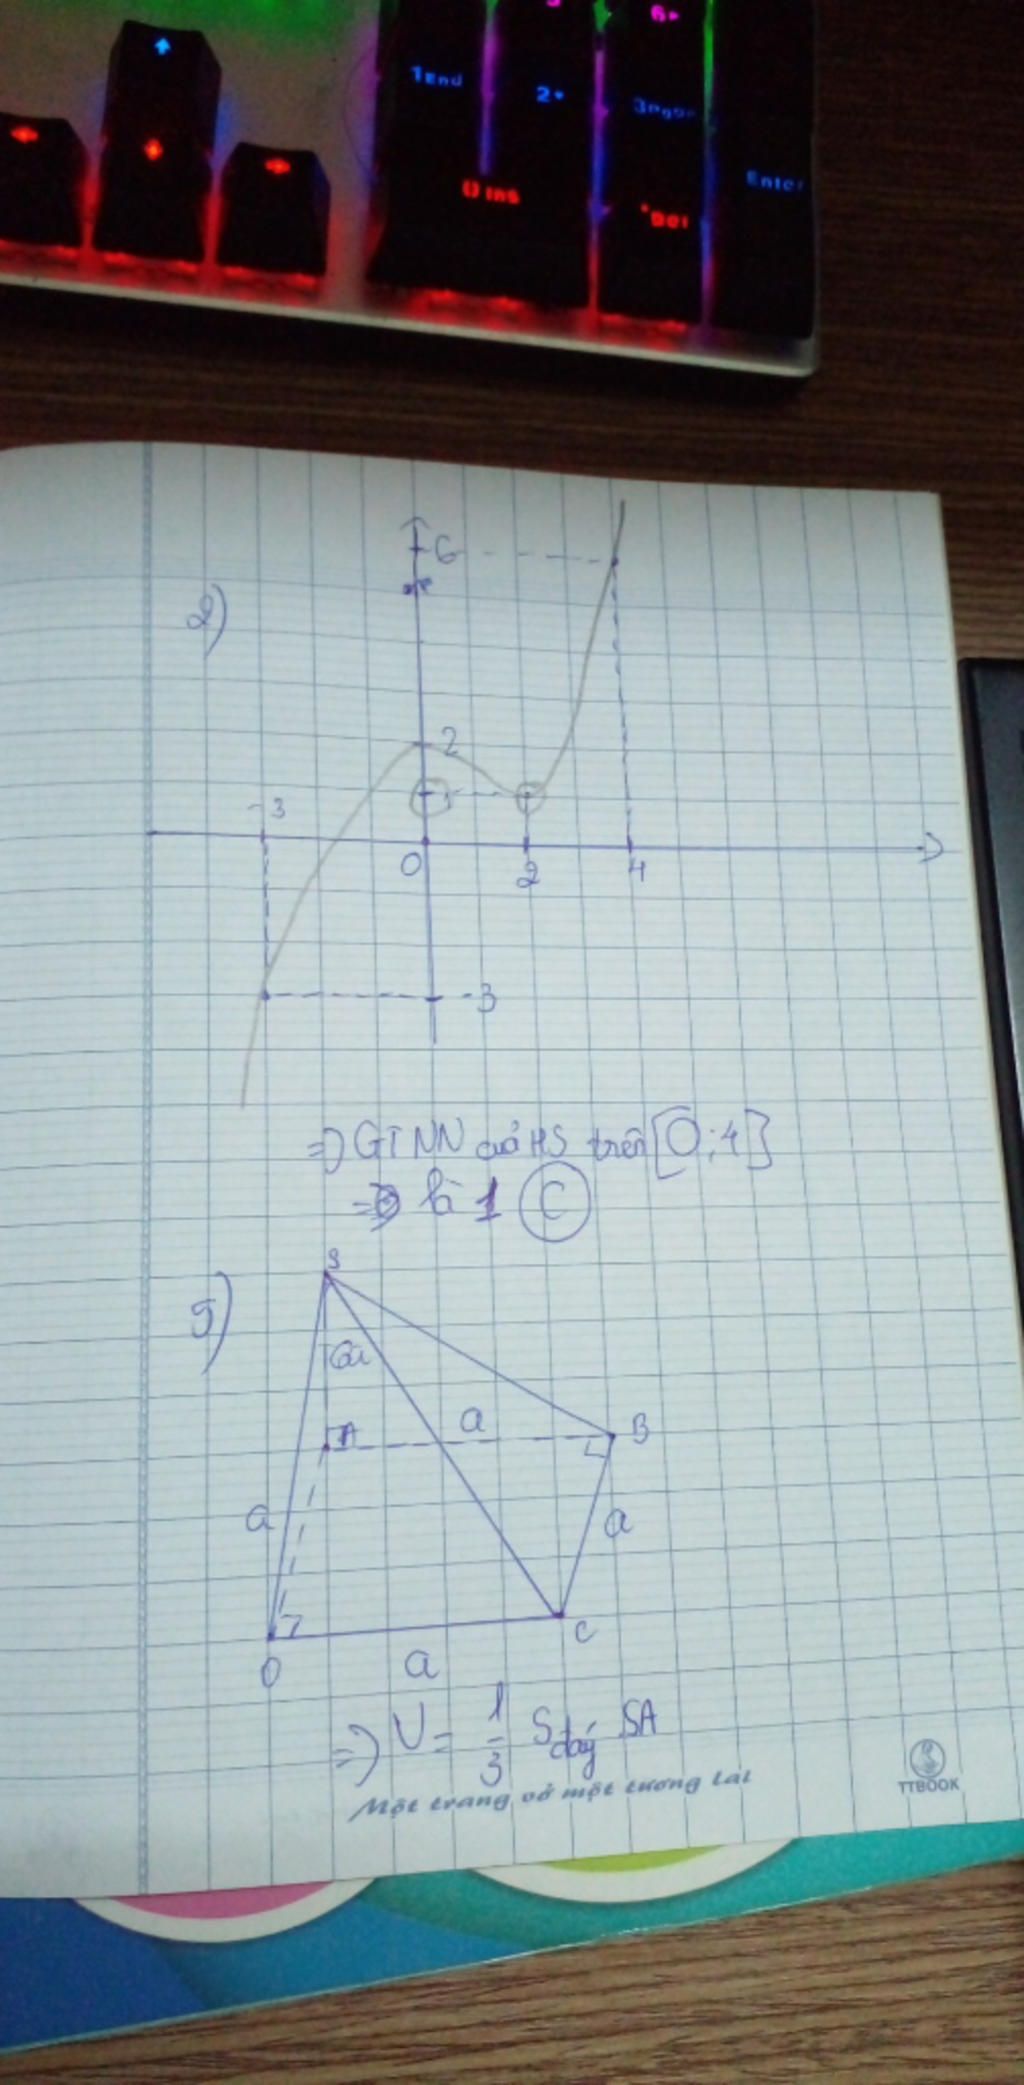 1End
2
3PgDn
6
0 Ins
Del
Enter
2)
6
2
-3
0
2
4
-3
=) GTNN của HS trên [0;4]
=) là 1 (C)
5)
S
6a
A
a
B
a
a
D
a
C
=) V = 1/3 S đáy SA
Một trang vở một tương lai
TTBOOK